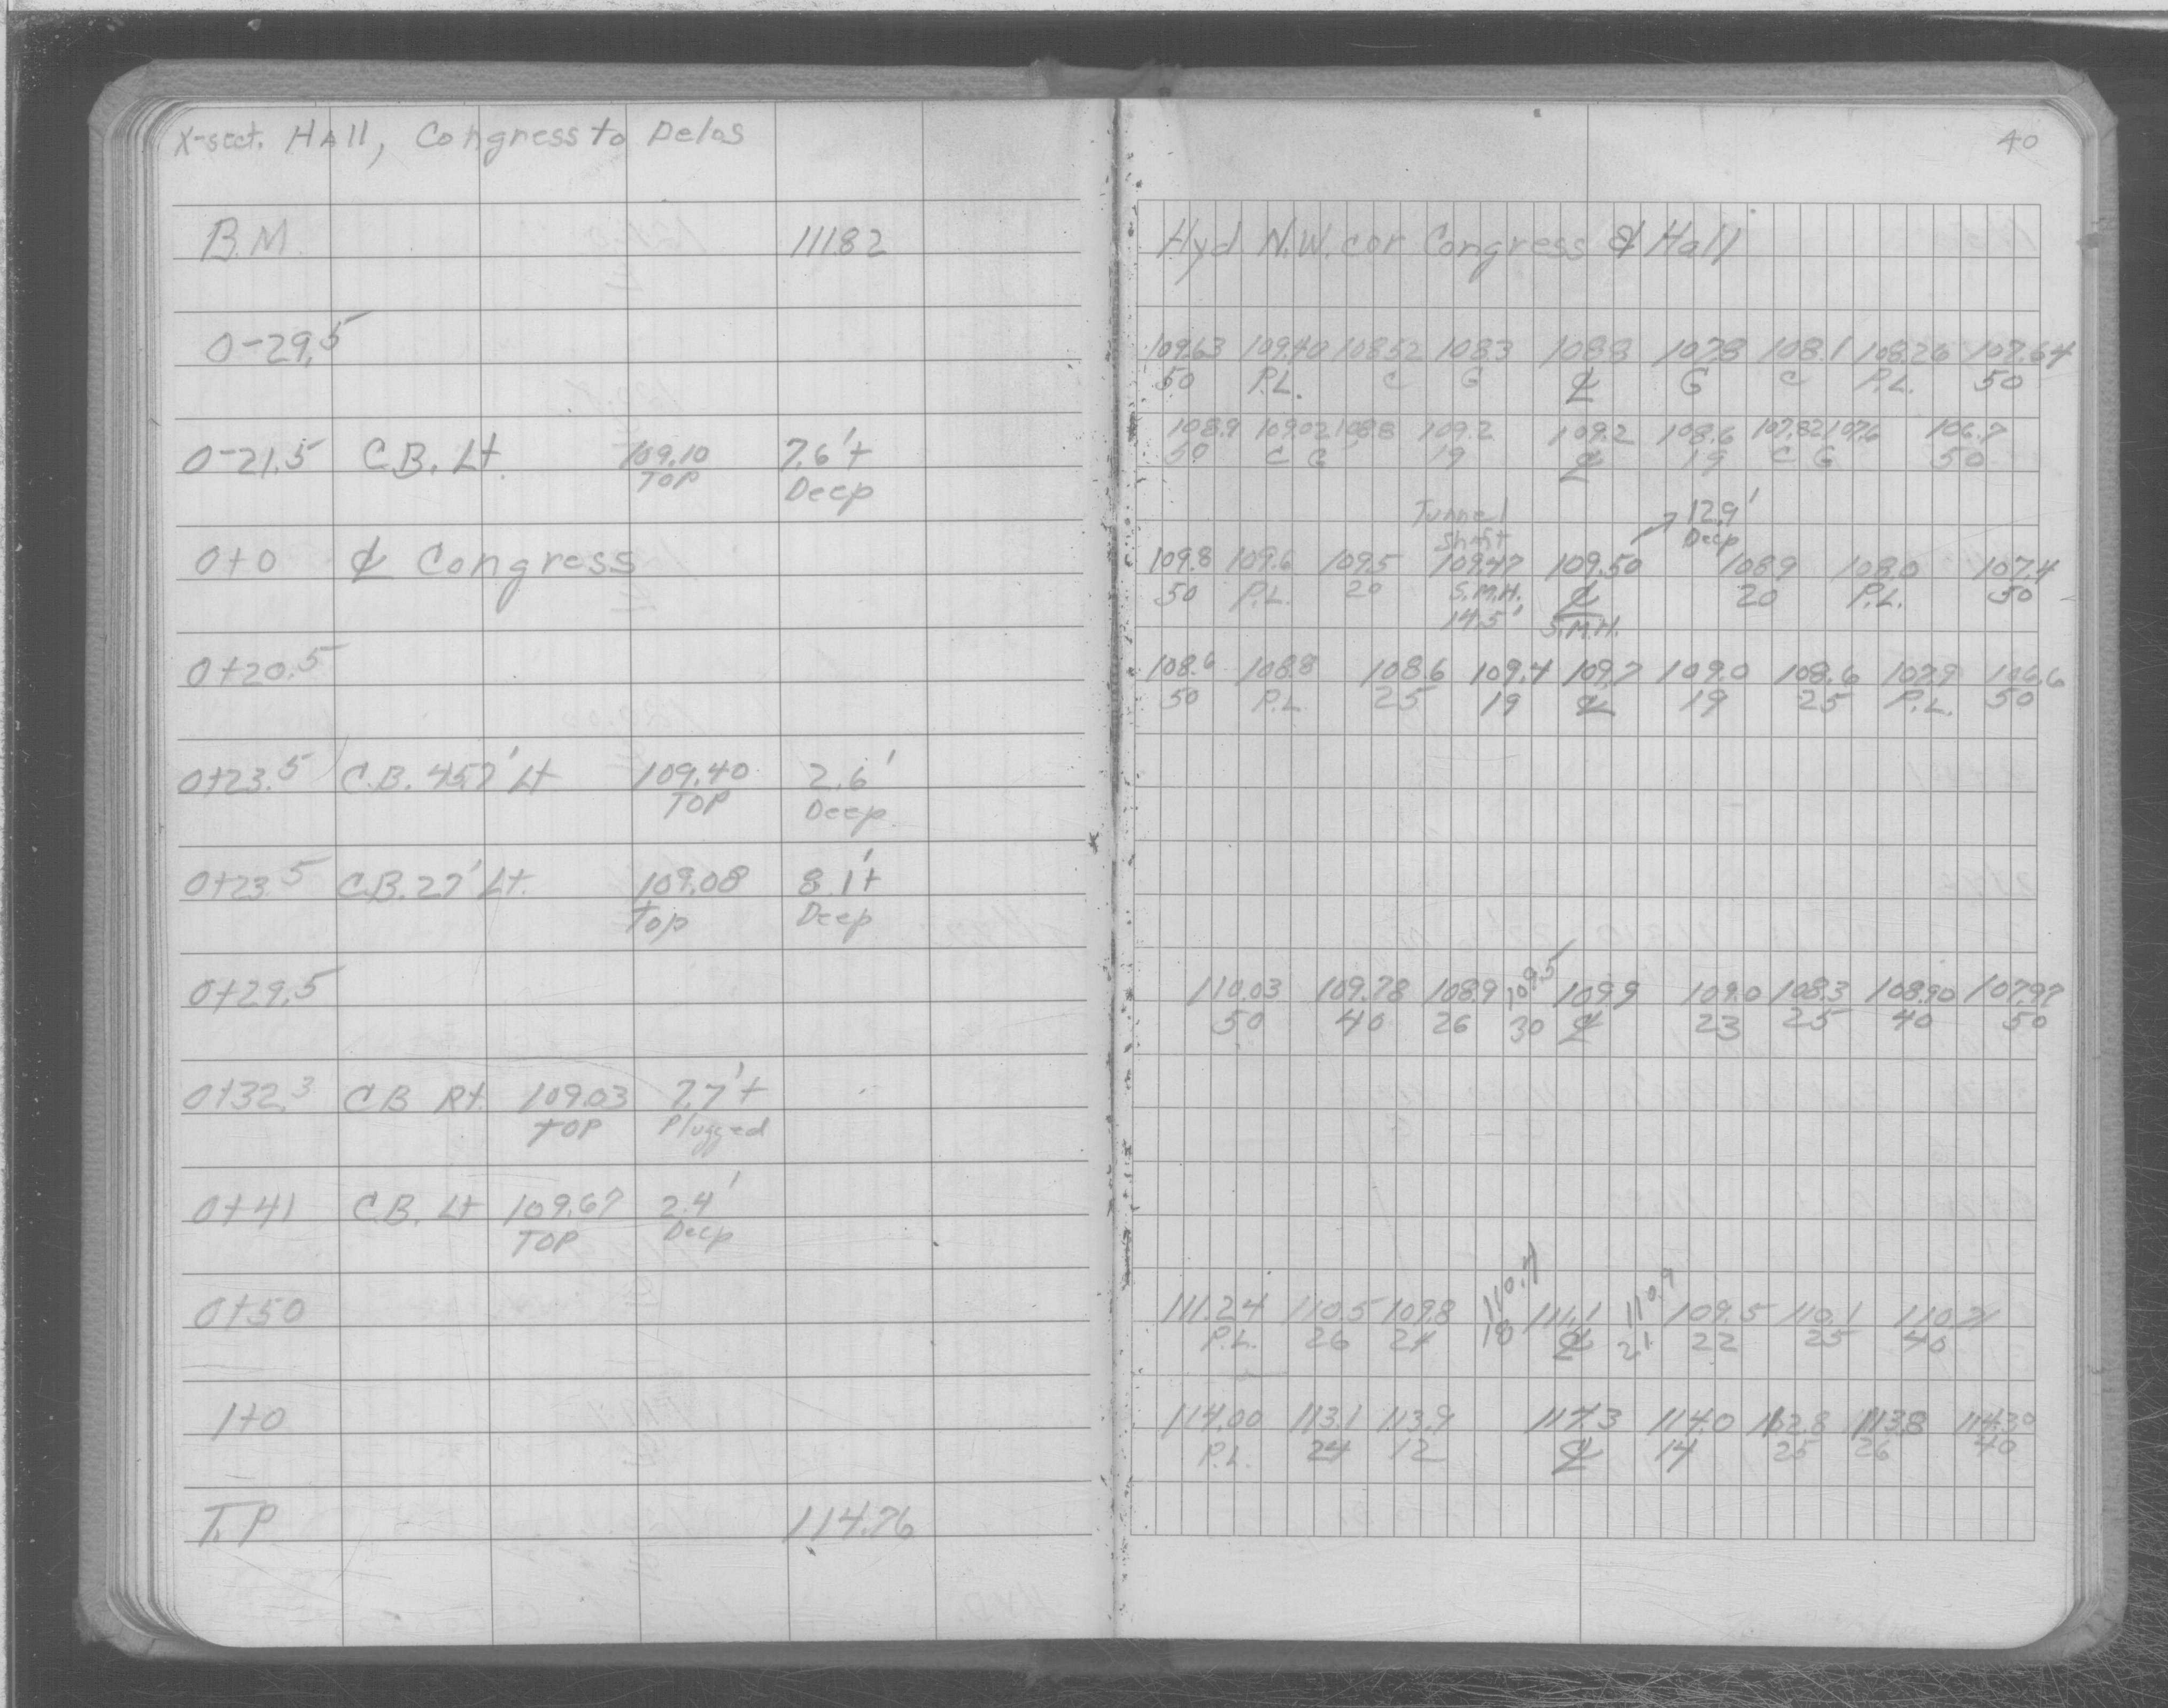 X-sect. Hall, Congress to Delos
40
B.M. 111.82 Hyd. N.W. cor Congress & Hall
0-29.5 109.63 109.40 108.52 108.3 108.8 107.8 108.1 108.26 107.64
50 P.L. C G ℄ G C P.L. 50
108.9 109.02 108.8 109.2 109.2 108.6 107.82 107.6 106.7
0-21.5 C.B. Lt. 109.10 7.6'+ 50 C G 19 ℄ 19 C G 50
TOP Deep
Tunnel 12.9'
Shaft Deep
0+0 ℄ Congress 109.8 109.6 109.5 109.47 109.50 108.9 108.0 107.4
50 P.L. 20 S.M.H. ℄ 20 P.L. 50
14.5' S.M.H.
0+20.5 108.6 108.8 108.6 109.4 109.7 109.0 108.6 107.9 106.6
50 P.L. 25 19 ℄ 19 25 P.L. 50
0+23.5 C.B. 45.7' Lt 109.40 2.6'
TOP Deep
0+23.5 C.B. 27' Lt. 109.08 8.1'+
Top Deep
0+29.5 110.03 109.78 108.9 109.5 109.9 109.0 108.3 108.90 107.97
50 40 26 30 ℄ 23 25 40 50
0+32.3 C.B Rt. 109.03 7.7'+
TOP Plugged
0+41 C.B. Lt 109.67 2.4'
TOP Deep
0+50 111.24 110.5 109.8 111.1 110.9 109.5 110.1
P.L. 26 24 18 ℄ 21 22 25 40
1+0 114.00 113.1 113.9 114.0 112.8 113.8 114.30
P.L. 24 12 ℄ 14 25 26 40
T.P 114.76